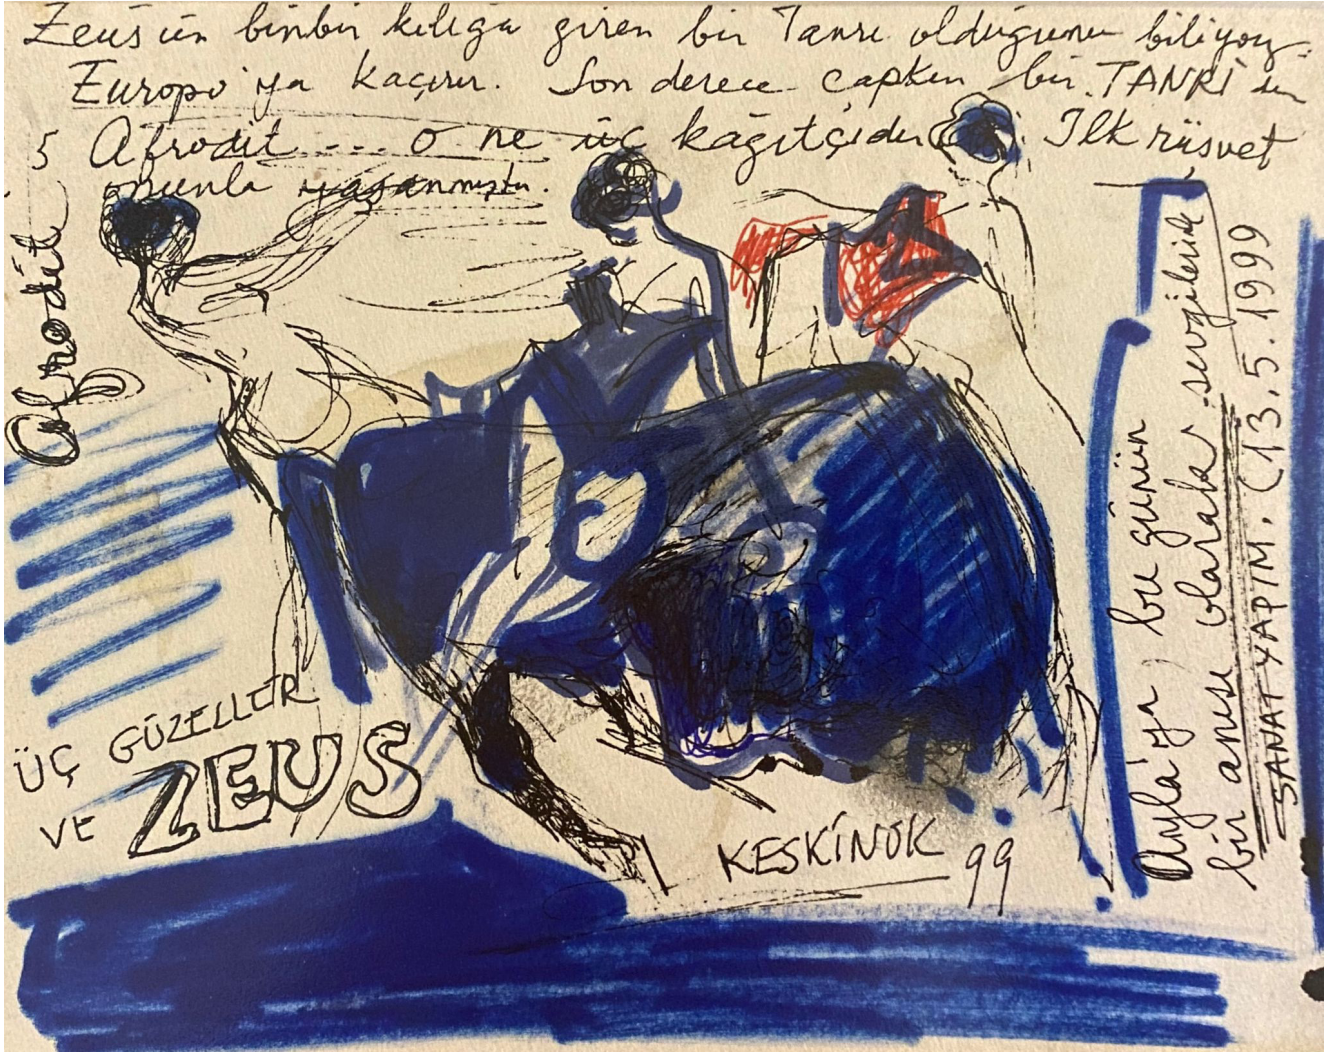 Zeus'ün binbir kılığa giren bir Tanrı olduğunu biliyoruz.
Europa'ya kaçırır. Son derece çapkın bir TANRI
5 Afrodit --- o ne üç kağıtçıdır İlk rüşvet
onunla yaşanmıştır.
Afrodit
ÜÇ GÜZELLER
VE ZEUS
KESKİNOK 99
bu günün
bir anısı olarak sevgilerimle
SANAT YAPTM. (13.5.1999